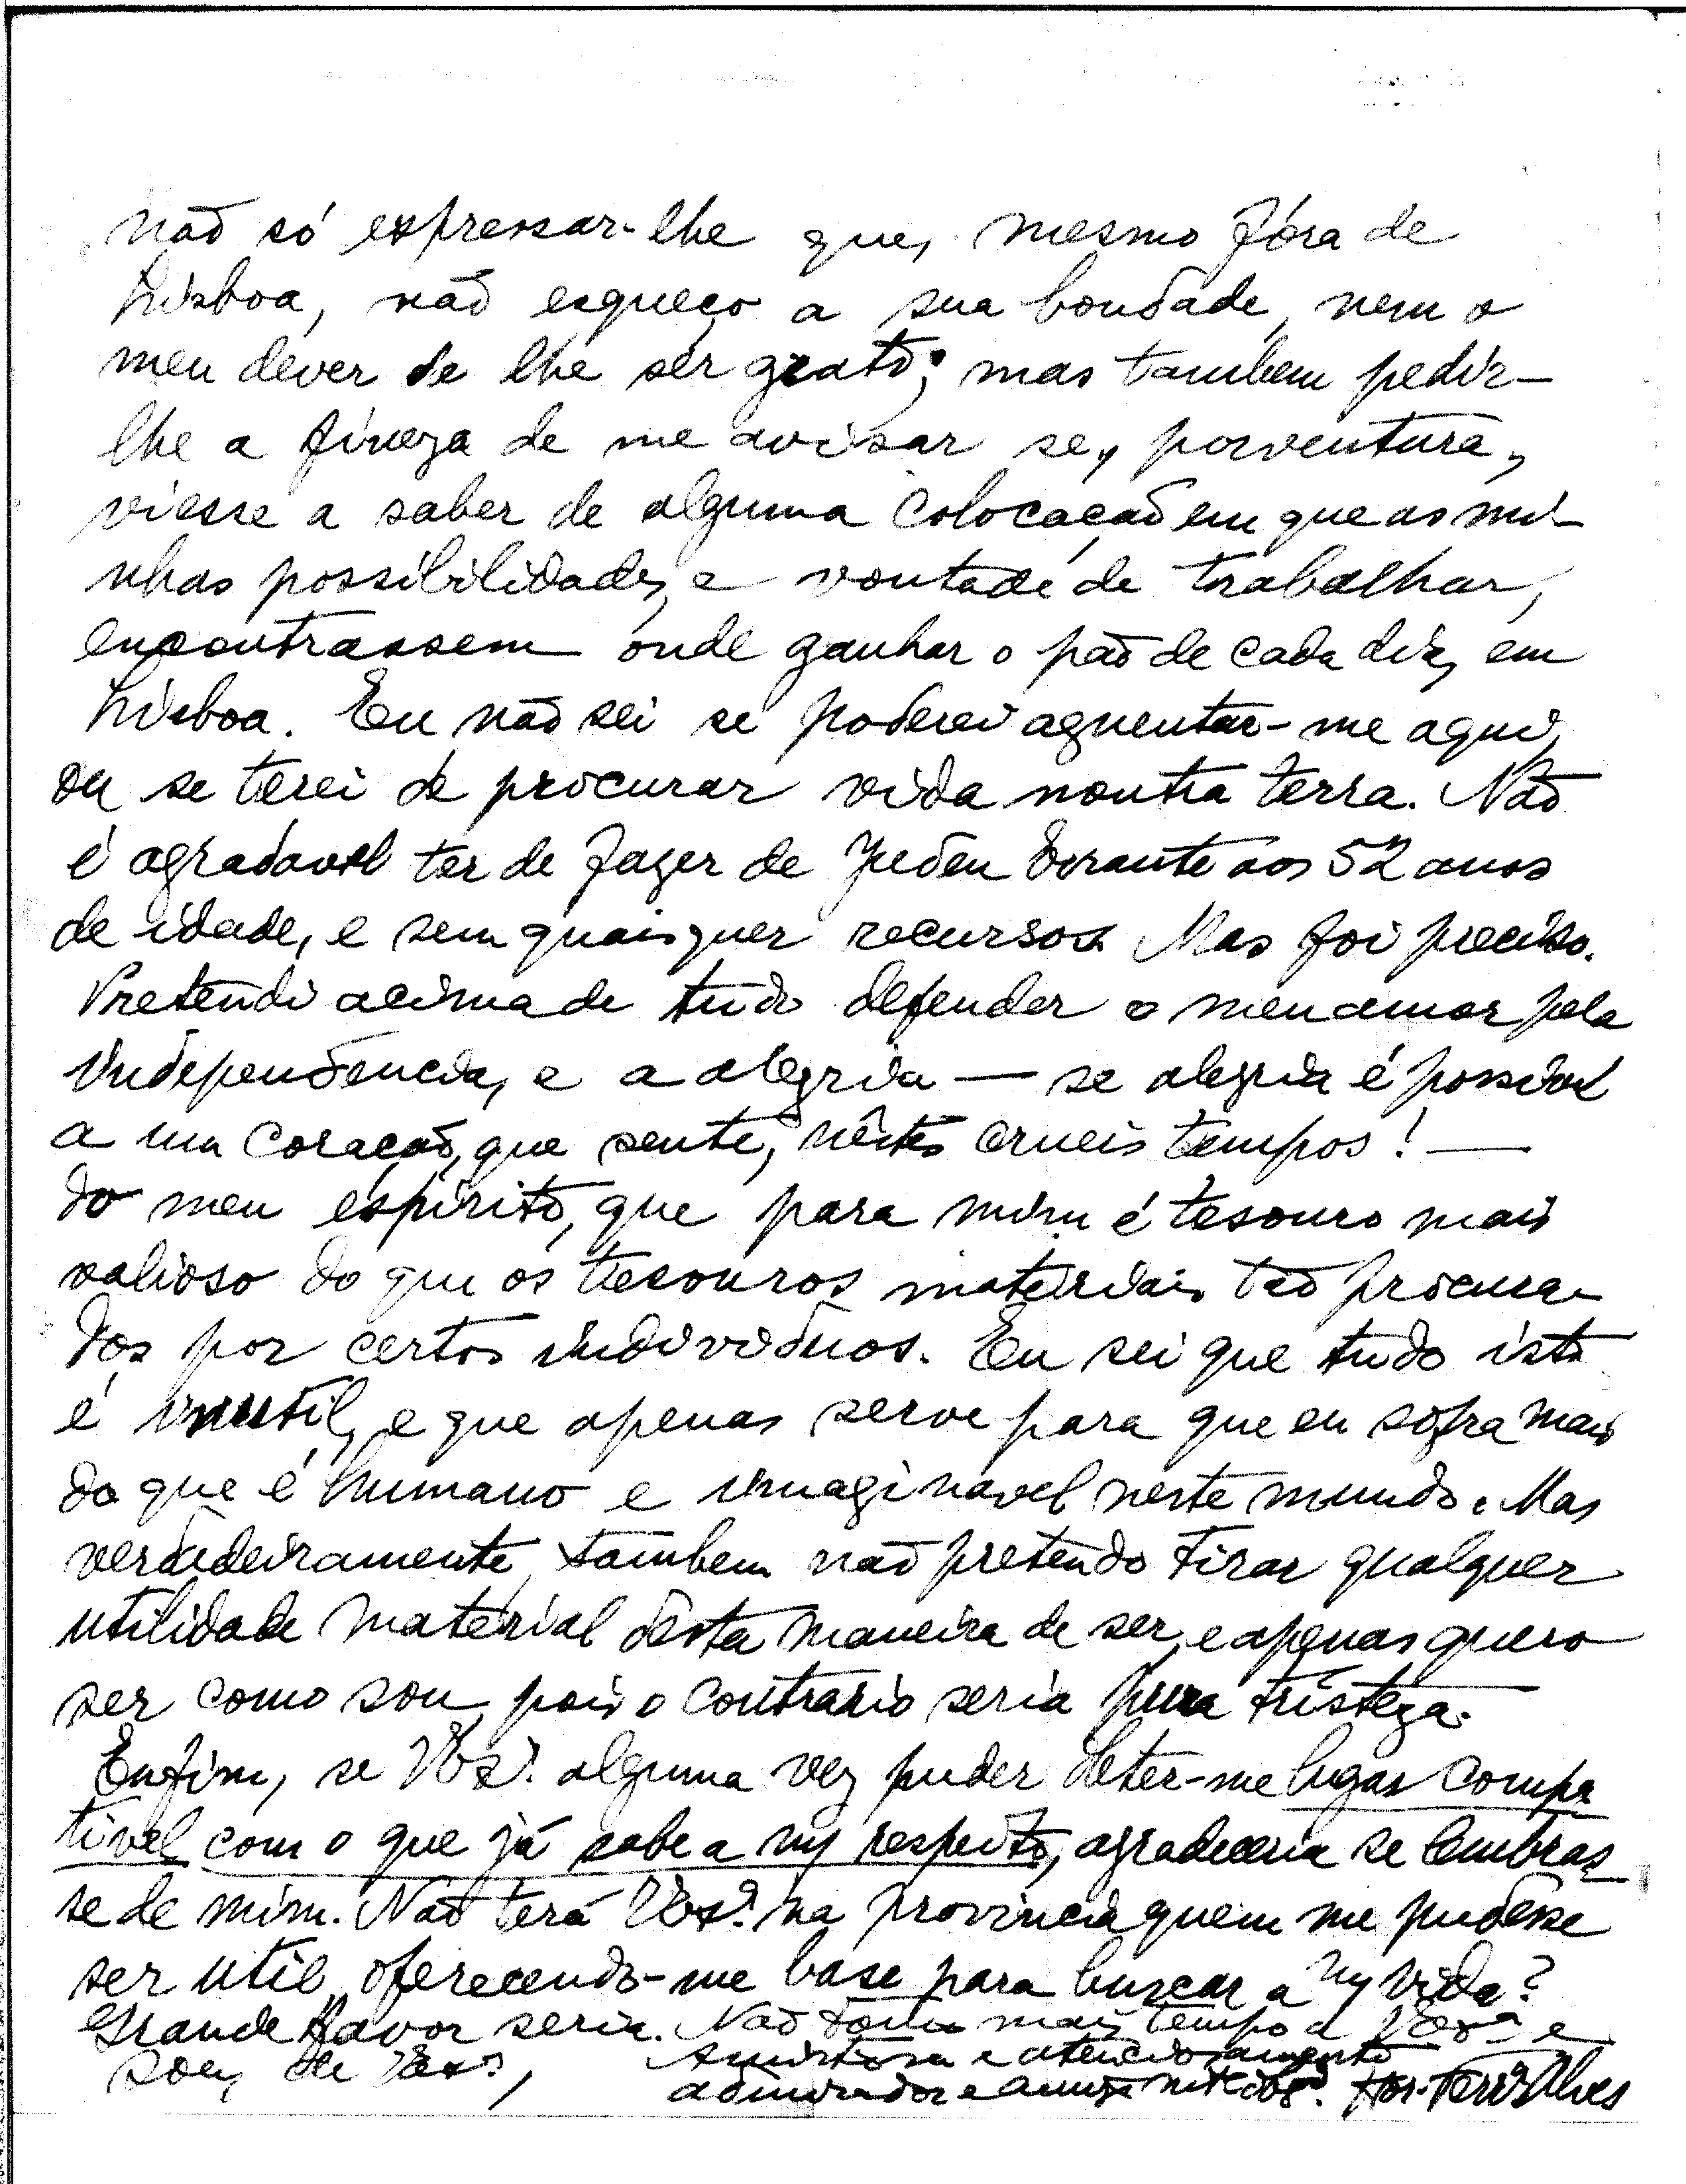 não só expressar-lhe que, mesmo fóra de
Lisboa, não esqueço a sua bondade, nem o
meu dever de lhe ser grato; mas tambem pedir-
lhe a fineza de me avisar se, porventura,
viesse a saber de alguma colocação em que as mi-
nhas possibilidades, e vontade de trabalhar,
encontrassem onde ganhar o pão de cada dia, em
Lisboa. Eu não sei se poderei aguentar-me aqui,
ou se terei de procurar vida noutra terra. Não
é agradavel ter de fazer de Judeu Errante aos 52 anos
de idade, e sem quaisquer recursos. Mas foi preciso.
Pretendi acima de tudo defender o meu amor pela
independência, e a alegria — se alegria é possivel
a um coração, que sente, nêstes crueis tempos! —
do meu espirito, que para mim é tesouro mais
valioso do que os tesouros materiais tão procura-
dos por certos individuos. Eu sei que tudo isto
é inutil, e que apenas serve para que eu sofra mais
do que é humano e imaginavel neste mundo. Mas
verdadeiramente, tambem não pretendo tirar qualquer
utilidade material desta maneira de ser, e apenas quero
ser como sou, pois o contrario seria pura tristeza.
Enfim, se V. Exª. alguma vez puder obter-me lugar compa
tivel com o que já sabe a my respeito, agradeceria se lembras
se de mim. Não terá V. Exª. na provincia quem me pudesse
ser util, oferecendo-me base para buscar a my vida?
Grande favor seria. Não tomo mais tempo a V. Exª e
sou, de V. Exª,
atenciosamente
admirador e amigo mtº obgº.